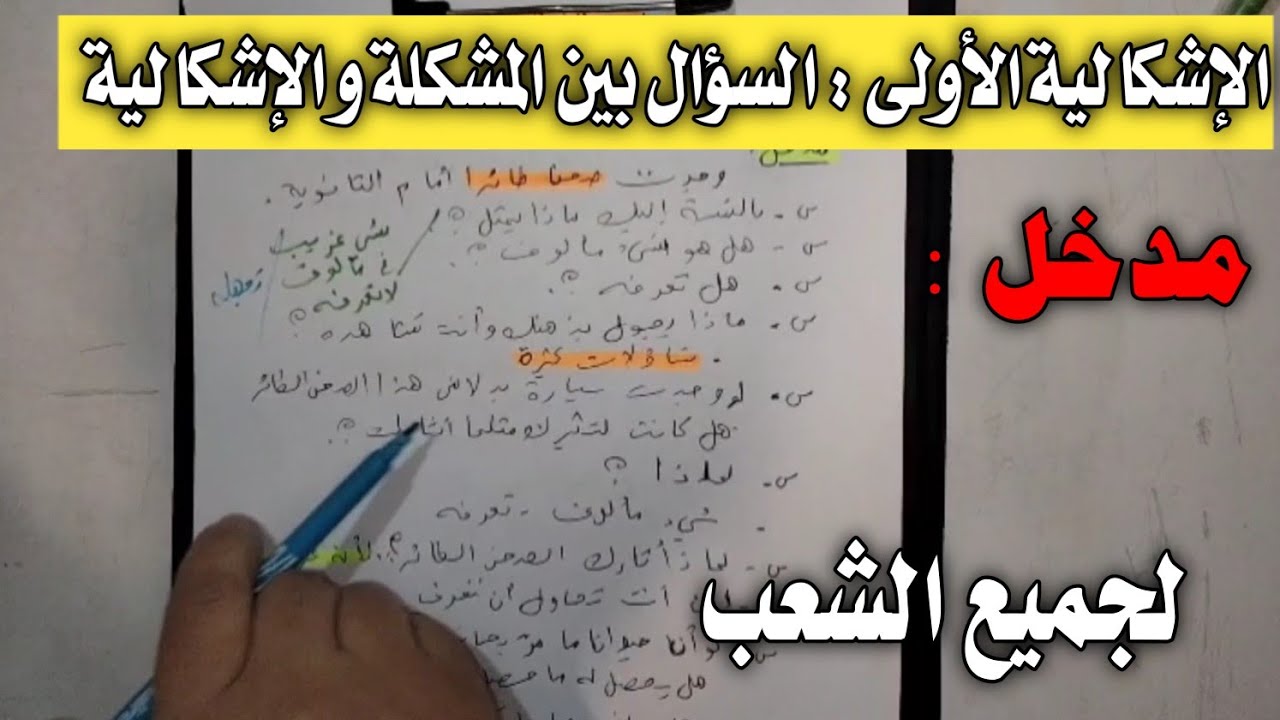 الإشكالية الأولى : السؤال بين المشكلة والإشكالية
مدخل :
لجميع الشعب
مدخل:
وجدت صحنا طائرا أمام الثانوية.
س. بالنسبة إليك ماذا يمثل؟
س - هل هو شيء مألوف؟
س. هل تعرفه؟
شيء غريب
غير مألوف
لا تعرفه
تجهله
س. ماذا يجول بذهنك وأنت تشاهده؟
. تساؤلات كثيرة
س. لو وجدت سيارة بدلا من هذا الصحن الطائر
هل كانت لتثيرك مثلما أثارك؟
س. لماذا؟
. شيء مألوف - تعرفه
س - لماذا أثارك الصحن الطائر؟.. لأنه
أنت تحاول أن تعرف
س. لو أن حيوانا ما مر
هل يحصل له ما حصل